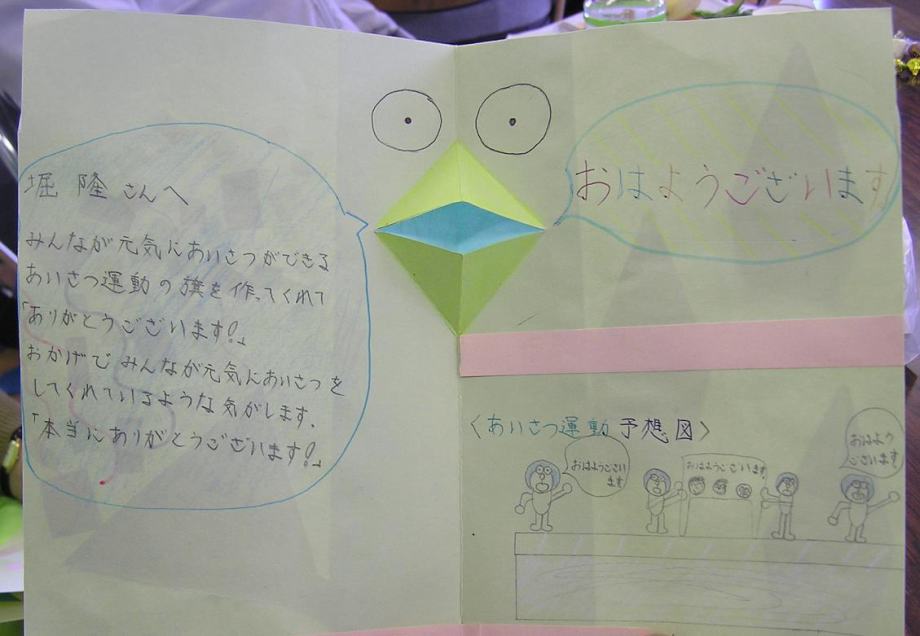 堀 隆 さんへ
みんなが元気にあいさつができる
あいさつ運動の旗を作ってくれて
「ありがとうございます!」
おかげでみんなが元気にあいさつを
してくれているような気がします.
「本当にありがとうございます!」
おはようございます
<あいさつ運動予想図>
おはようござい
ます
おはようございます
おはよう
ございます